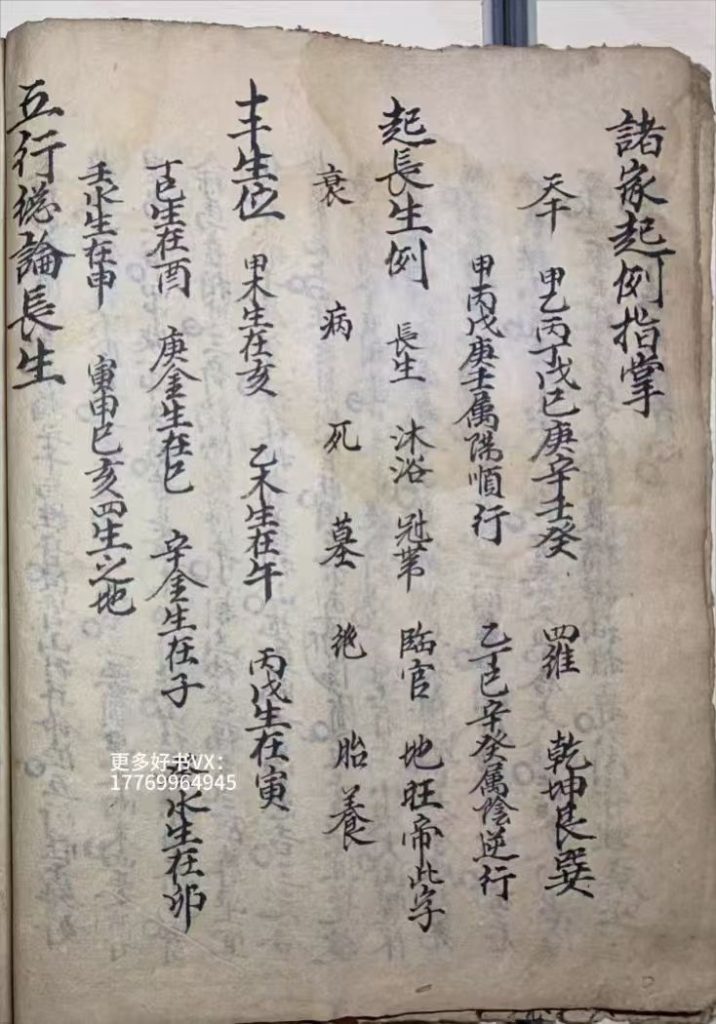 諸家起例指掌
天干 甲乙丙丁戊己庚辛壬癸 四維 乾坤艮巽
甲丙戊庚壬属陽順行 乙丁己辛癸属陰逆行
起長生例 長生 沐浴 冠帯 臨官 地旺帝此字
衰 病 死 墓 绝 胎 養
十干生位 甲木生在亥 乙木生在午 丙戊生在寅
丁己生在酉 庚金生在巳 辛金生在子 水生在卯
壬水生在申 寅申巳亥四生之地
五行総論長生
更多好书VX：
17769964945